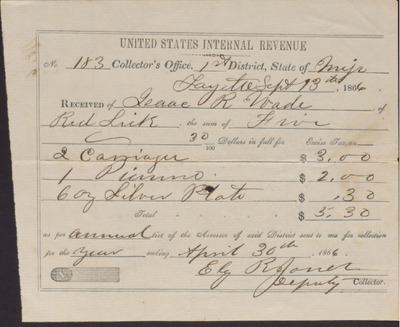 UNITED STATES INTERNAL REVENUE
No. 183 Collector's Office, 1st District, State of Miss
Fayette Sept 13th 1866
RECEIVED OF Isaac R Wade of
Red Lick the sum of Five
30/100 Dollars in full for Excise Taxes
2 Carriages $ 3.00
1 Pianno $ 2.00
60 oz Silver Plate $ .30
Total $ 5.30
as per annual list of the Assessor of said District sent to me for collection
for the Year ending April 30th 1866
Ely R Jones
Deputy Collector.